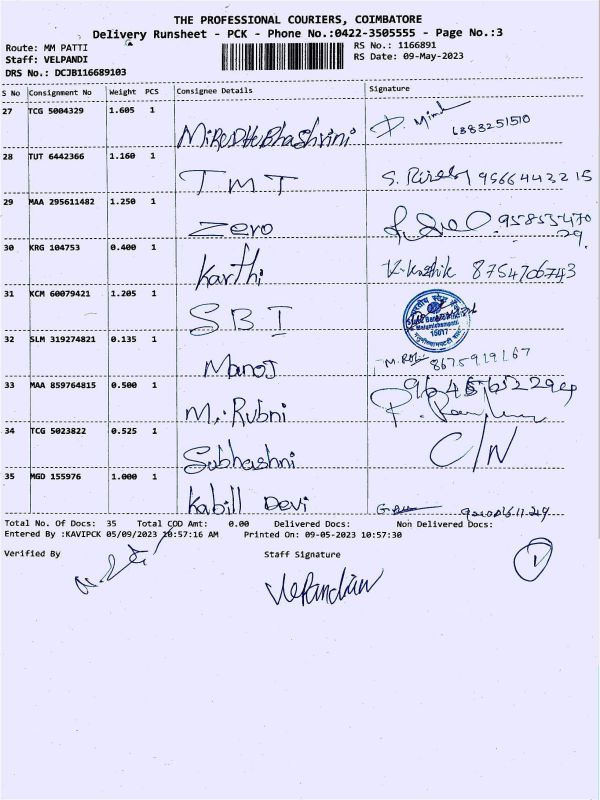 THE PROFESSIONAL COURIERS, COIMBATORE
Delivery Runsheet - PCK - Phone No.:0422-3505555 - Page No.:3
Route: MM PATTI
RS No.: 1166891
Staff: VELPANDI
RS Date: 09-May-2023
DRS No.: DCJB116689103
S No Consignment No Weight PCS Consignee Details Signature
27 TCG 5004329 1.605 1
MiRUDHUBhashvini 6383251510
28 TUT 6442366 1.160 1
TMT 9566443215
29 MAA 295611482 1.250 1
Zero
30 KRG 104753 0.400 1
Karthi K.Karthik 8754706743
31 KCM 60079421 1.205 1
SBI
32 SLM 319274821 0.135 1
Manoj 8675919167
33 MAA 859764815 0.500 1
M. Rubni
34 TCG 5023822 0.525 1
Subhashni C/N
35 MGD 155976 1.000 1
Kabill Devi
Total No. Of Docs: 35 Total COD Amt: 0.00 Delivered Docs: Non Delivered Docs:
Entered By :KAVIPCK 05/09/2023 10:57:16 AM Printed On: 09-05-2023 10:57:30
Verified By Staff Signature
VelPandian
1